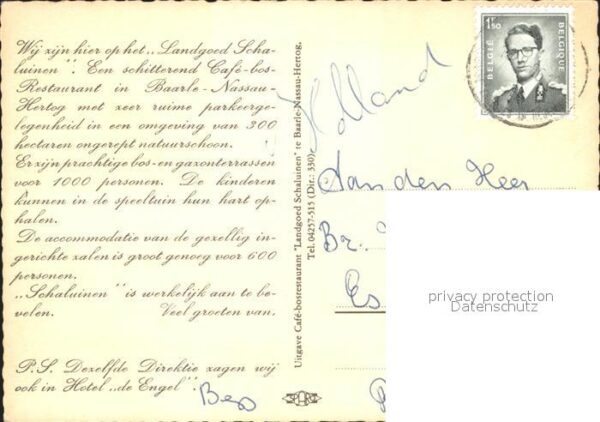 Wij zijn hier op het „Landgoed Scha-
luinen". Een schitterend Café-bos-
Restaurant in Baarle-Nassau-
Hertog met zeer ruime parkeerge-
legenheid in een omgeving van 300
hectaren ongerept natuurschoon.
Er zijn prachtige bos- en gazonterrassen
voor 1000 personen. De kinderen
kunnen in de speeltuin hun hart op-
halen.
De accommodatie van de gezellig in-
gerichte zalen is groot genoeg voor 600
personen.
„Schaluinen" is werkelijk aan te be-
velen. Veel groeten van,
P.S. Dezelfde Direktie zagen wij
ook in Hotel „de Engel".
Bep
Uitgave Café-bosrestaurant "Landgoed Schaluinen" te Baarle-Nassau-Hertog.
Tel. 04257-515 (Dir.: 530)
Holland
1F50
BELGIË BELGIQUE
Aan den Heer
Br.
Es
privacy protection
Datenschutz